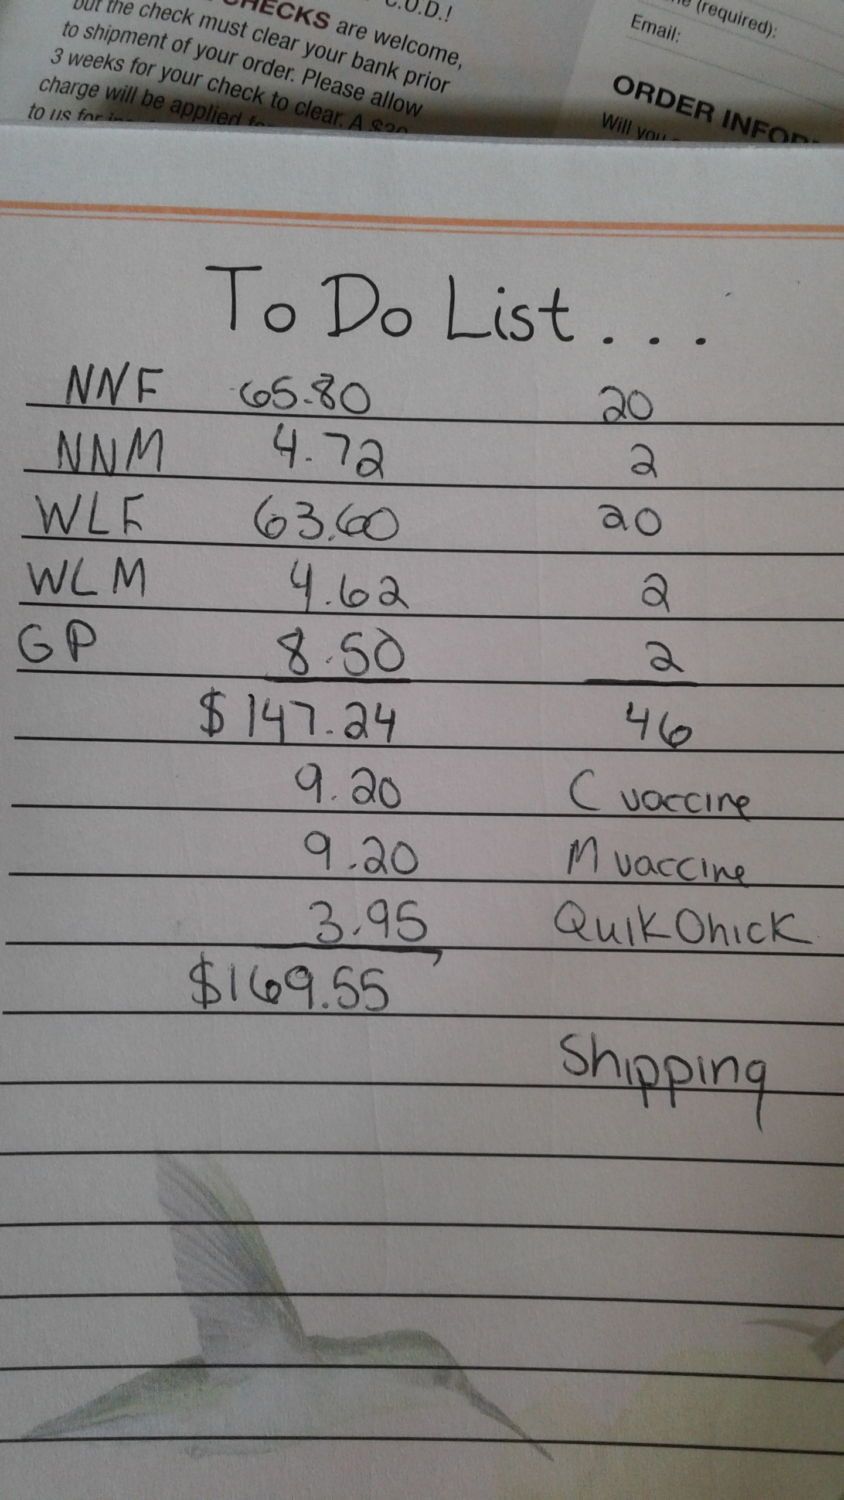 C.O.D.!
CHECKS are welcome,
but the check must clear your bank prior
to shipment of your order. Please allow
3 weeks for your check to clear. A $20
charge will be applied
to us for
(required):
Email:
ORDER INFOR
Will you
To Do List...
NNF 65.80 20
NNM 4.72 2
WLF 63.60 20
WLM 4.62 2
GP 8.50 2
$147.24 46
9.20 C vaccine
9.20 M vaccine
3.95 QuikChick
$169.55
Shipping